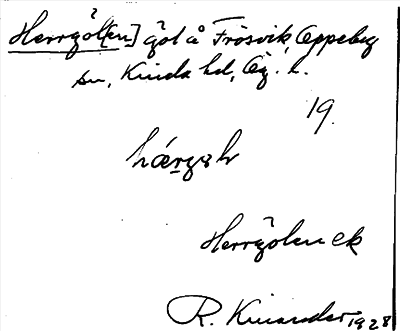 Herrgöl[en] göl å Frösvik, Oppeby
sn, Kinda hd, Ög. l.
19.
Herrgölen ek
R. Kinander 1928